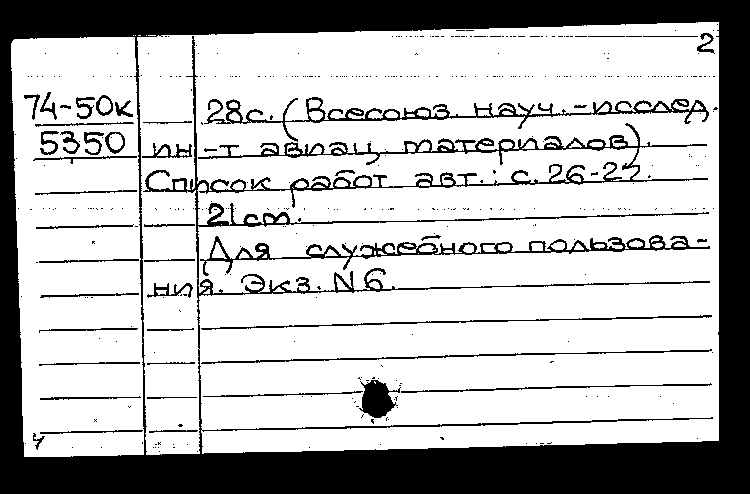 2
74-50к 28с. (Всесоюз. науч.-исслед.
5350 ин-т авиац. материалов).
Список работ авт.: с. 26-27.
21 cm.
Для служебного пользова-
ния. Экз. N 6.